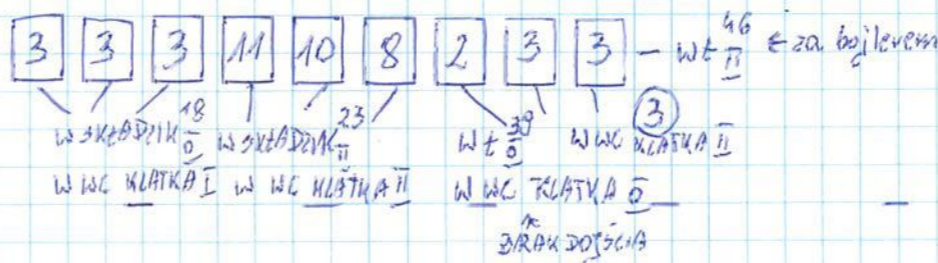 3 3 3 11 10 8 2 3 3 - wt 46 II ← za bojlerem
W SKŁADZIK 18 0 W SKŁADZIK 23 II wt 39 0 W WC 3 KLATKA II
W WC KLATKA I W WC KLATKA II W WC KLATKA 0
BRAK DOJŚCIA